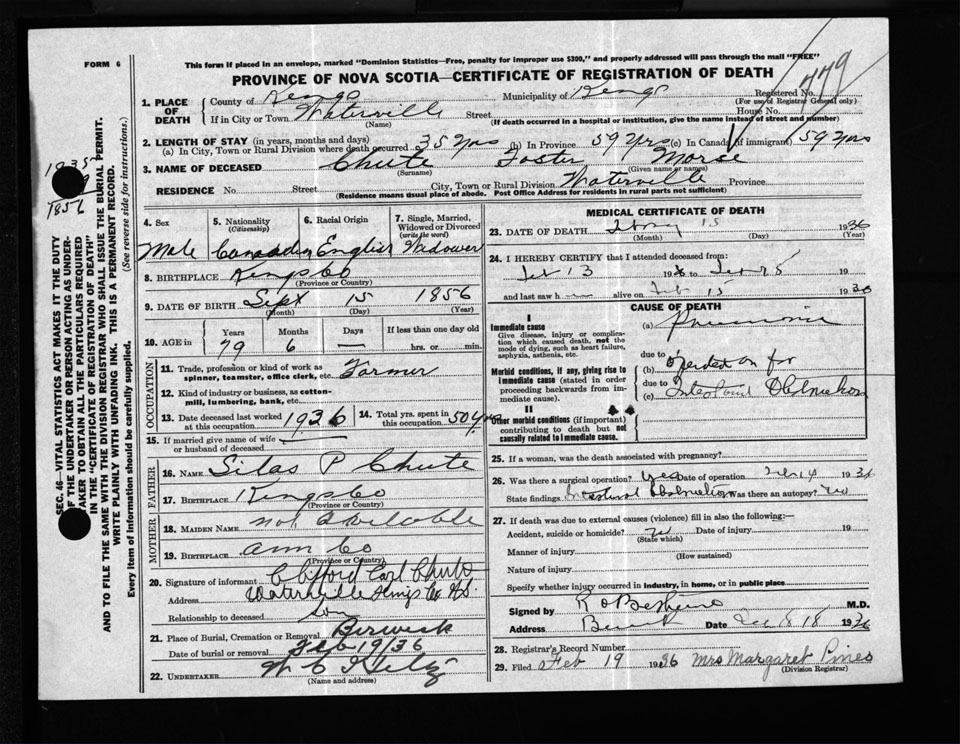 FORM 6
This form if placed in an envelope, marked "Dominion Statistics—Free, penalty for improper use $300," and properly addressed will pass through the mail "FREE"
PROVINCE OF NOVA SCOTIA—CERTIFICATE OF REGISTRATION OF DEATH
779
1. PLACE OF DEATH
County of Kings Municipality of Kings Registered No.
(For use of Registrar General only)
If in City or Town Waterville Street House No.
(Name) (If death occurred in a hospital or institution, give the name instead of street and number)
2. LENGTH OF STAY (in years, months and days)
(a) In City, Town or Rural Division where death occurred 35 yrs (b) In Province 59 yrs (c) In Canada (if immigrant) 59 yrs
3. NAME OF DECEASED Chute Foster Morse
(Surname) (Given name or names)
RESIDENCE No Street City, Town or Rural Division Waterville Province
(Residence means usual place of abode. Post Office Address for residents in rural parts not sufficient)
1935
1856
SEC. 46—VITAL STATISTICS ACT MAKES IT THE DUTY
OF THE UNDERTAKER OR PERSON ACTING AS UNDER-
TAKER TO OBTAIN ALL THE PARTICULARS REQUIRED
IN THE "CERTIFICATE OF REGISTRATION OF DEATH"
AND TO FILE THE SAME WITH THE DIVISION REGISTRAR WHO SHALL ISSUE THE BURIAL PERMIT.
WRITE PLAINLY WITH UNFADING INK. THIS IS A PERMANENT RECORD.
Every item of information should be carefully supplied. (See reverse side for instructions.)
4. Sex 5. Nationality (Citizenship) 6. Racial Origin 7. Single, Married, Widowed or Divorced (write the word)
Male Canadian English Widower
8. BIRTHPLACE Kings Co
(Province or Country)
9. DATE OF BIRTH Sept 15 1856
(Month) (Day) (Year)
10. AGE in Years Months Days If less than one day old
79 6 — hrs. or min.
OCCUPATION
11. Trade, profession or kind of work as spinner, teamster, office clerk, etc. Farmer
12. Kind of industry or business, as cotton-mill, lumbering, bank, etc.
13. Date deceased last worked at this occupation 1936 14. Total yrs. spent in this occupation 50 yrs
15. If married give name of wife or husband of deceased —
FATHER
16. NAME Silas P Chute
17. BIRTHPLACE Kings Co
(Province or Country)
MOTHER
18. MAIDEN NAME not Available
19. BIRTHPLACE Ann Co
(Province or Country)
20. Signature of informant Clifford Carl Chute
Address Waterville Kings Co N.S.
Relationship to deceased son
21. Place of Burial, Cremation or Removal Berwick
Date of burial or removal Feb 19/36
22. UNDERTAKER
(Name and address)
MEDICAL CERTIFICATE OF DEATH
23. DATE OF DEATH 15 1936
(Month) (Day) (Year)
24. I HEREBY CERTIFY that I attended deceased from:
Feb 13 19 to 19
and last saw h alive on Feb 15 1936
CAUSE OF DEATH
I
Immediate cause
Give disease, injury or complication which caused death, not the mode of dying, such as heart failure, asphyxia, asthenia, etc.
(a) Pneumonia
due to
Morbid conditions, if any, giving rise to immediate cause (stated in order proceeding backwards from immediate cause).
(b) Operated on for
due to
(c) Intestinal Obstruction
II
Other morbid conditions (if important) contributing to death but not causally related to immediate cause.
25. If a woman, was the death associated with pregnancy?
26. Was there a surgical operation? Yes Date of operation Feb 14 1936
State findings Intestinal Obstruction Was there an autopsy? No
27. If death was due to external causes (violence) fill in also the following:—
Accident, suicide or homicide? Date of injury 19
(State which)
Manner of injury
(How sustained)
Nature of injury
Specify whether injury occurred in industry, in home, or in public place
Signed by M.D.
Address Berwick Date 18 1936
28. Registrar's Record Number
29. Filed Feb 19 1936 Mrs Margaret Pines
(Division Registrar)